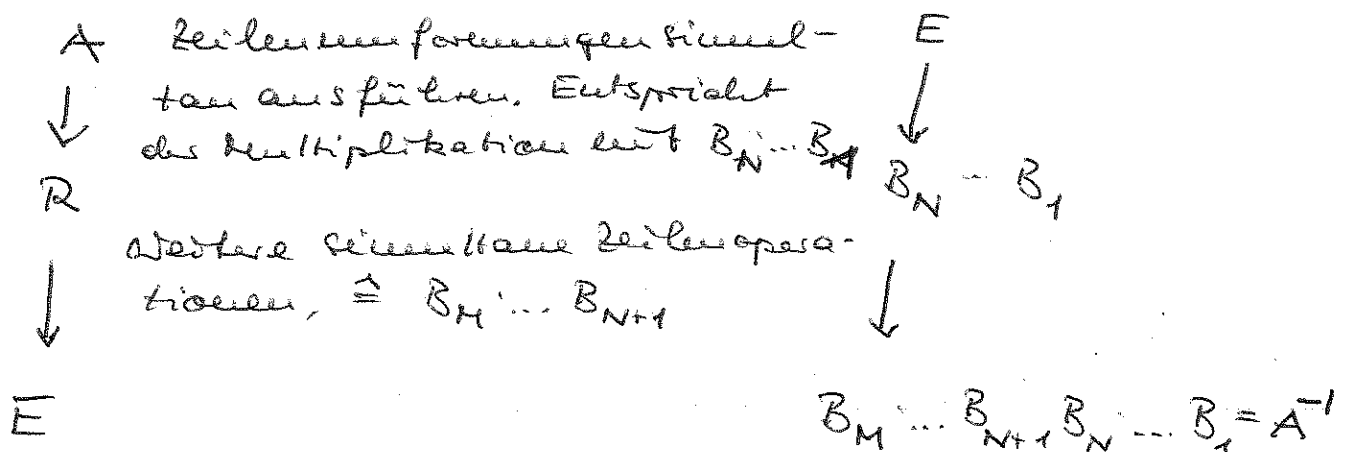 A Zeilenumformungen simul- E
tan ausführen. Entspricht
der Multiplikation mit B_N ... B_1 B_N ... B_1
R
Weitere simultane Zeilenopera-
tionen, ≙ B_M ... B_{N+1}
E B_M ... B_{N+1} B_N ... B_1 = A^{-1}